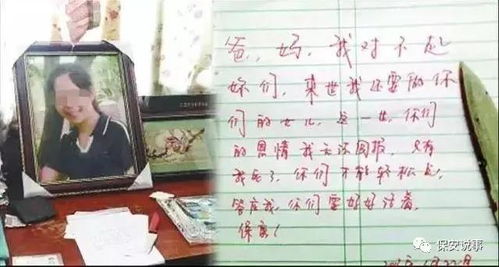 爸、妈，我对不起
你们，来世我还要做你
们的女儿，这一世，你们
的恩情我无法回报，只有
我死了，你们才能轻松点，
答应我，你们要好好活着，
保重！
保安说事